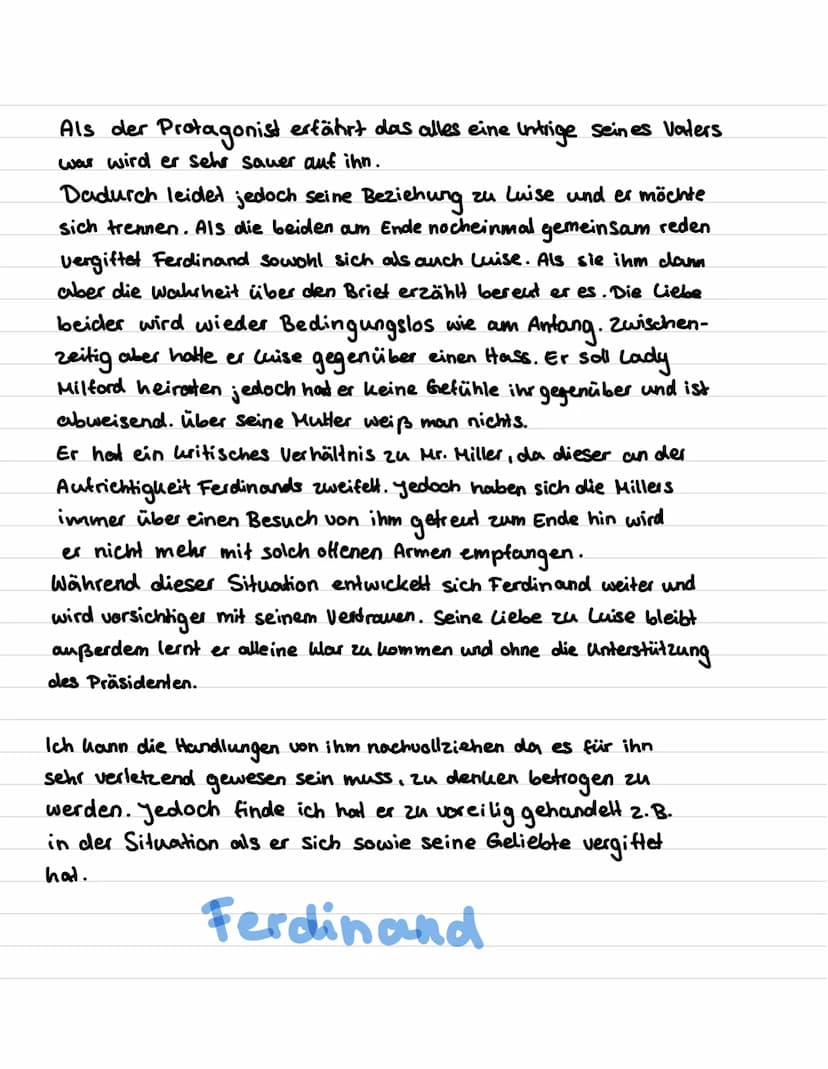 Als der Protagonist erfährt das alles eine Intrige seines Vaters
war wird er sehr sauer auf ihn.
Dadurch leidet jedoch seine Beziehung zu Luise und er möchte
sich trennen. Als die beiden am Ende nocheinmal gemeinsam reden
vergiftet Ferdinand sowohl sich als auch Luise. Als sie ihm dann
aber die Wahrheit über den Brief erzählt bereut er es. Die Liebe
beider wird wieder Bedingungslos wie am Anfang. Zwischen-
zeitig aber hatte er Luise gegenüber einen Hass. Er soll Lady
Milford heiraten jedoch hat er keine Gefühle ihr gegenüber und ist
abweisend. Über seine Mutter weiß man nichts.
Er hat ein kritisches Verhältnis zu Mr. Miller, da dieser an der
Aufrichtigkeit Ferdinands zweifelt. Jedoch haben sich die Millers
immer über einen Besuch von ihm gefreut zum Ende hin wird
er nicht mehr mit solch offenen Armen empfangen.
Während dieser Situation entwickelt sich Ferdinand weiter und
wird vorsichtiger mit seinem Vertrauen. Seine Liebe zu Luise bleibt
außerdem lernt er alleine klar zu kommen und ohne die Unterstützung
des Präsidenten.
Ich kann die Handlungen von ihm nachvollziehen da es für ihn
sehr verletzend gewesen sein muss, zu denken betrogen zu
werden. Jedoch finde ich hat er zu voreilig gehandelt z.B.
in der Situation als er sich sowie seine Geliebte vergiftet
hat.
Ferdinand